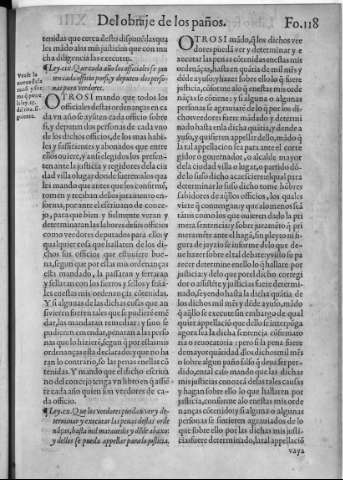 Del obraje de los paños. Fo. 118
tenidas que cerca desto disponen
les mādo alas mis justicias que con mu
cha diligencia las executen.
¶ Ley.cxi. Que cada año los officiales se jun
ten cada officio por sy, y deputen dos perso
nas para veedores.
OTROSI mando que todos los
officiales destas ordenanças en ca
da vn año se ayuntē cada officio sobre
sy, y deputen dos personas de cada vno
de los dichos officios, de los mas habi
les y suffitientes y abonados que entre
ellos ouiere, y ansi elegidos los presen
ten ante la justicia y regidores dela ciu
dad villa o lugar donde fueren alos qua
les mando que antes que los confirmē,
tomen y reciban dellos juramento en
forma, por ante el escriuano de conce
jo, para que bien y fielmente veran y
determinaran las labores de sus officios
como veedores deputados para ello y
qualquier cosa que hallaren de los di
chos sus officios que estuuiere bue
na, segun que por estas mis ordenanças
esta mandado, la passaran y firmaran
y sellaran con los fierros y sellos y señā
les enestas mis ordenanças cōtenidas.
Y si algunas de las dichas cosas que an
si vieren fueren tales que se pudiere emē
dar, las mandaran remediar / y si no se
pudieren emendar, penaran a las perso
nas que lo hiziere, segun q̄ por estas mis
ordenanças esta declarado: y que no ha
ran lo contrario, so las penas enellas cō
tenidas. Y mando que el dicho escriua
no del concejo tenga vn libro en q̄ assiē
te cada año quien son veedores de ca
da officio.
¶ Ley.cxii. Que los veedores puedan ver y de
terminar y executar las penas destas orde
nāças, hasta mil marauedis y dēde abaxo:
y dellos se pueda appellar para la justicia.
OTROSI mādo, q̄ los dichos vee
dores puedā ver y determinar y e
xecutar las penas cōtenidas enestas mis
ordenāças, hasta en quātia de mil mrs y
dēde a yuso, y si la
justicia, cōforme alo q̄ enestas mis orde
nāças se cōtiene: y si alguna o algunas
personas se agrauiare de lo q̄ por los di
chos veedores fuere mādado y determi
nado hasta enla dicha quātia, y dende a
yuso, y quisieren appellar dello, mādo q̄
la tal appellacion sea para ante el corre
gidor o gouernador, o alcalde mayor
dela ciudad villa o lugar, o partido dō
de lo suso dicho acaeciere: el qual para
determinar lo suso dicho tome hōbres
sabidores de aq̄llos officios, los quales
sean
tianos como los que ouieren dado la pri
mera sentencia: y sobre juramēto q̄ pri
meramēte ante el hagā, sin pleyto ni fi
gura de juyzio se informe delo que de
ue hazer sobre el tal debate y visto su pa
recer determine enello lo q̄ hallare por
justicia: y delo que por el dicho corregi
dor o assistēte y justicias fuere determi
nado, seyendo hasta la dicha quātia de
los dichos mil mrs y dēde ayuso, mādo
q̄ aq̄llo se execute sin embargo de qual
quier appellaciō que dello se interpōga
agora sea la dicha sentencia cōfirmato
ria o reuocatoria: pero si la pena fuere
de mayor quātidad dlos dichos mil mrs
o sobre algun paño si es q̄ deua ser per
dido, en tal caso mando que las dichas
mis justicias conozcā delas tales causas
y hagan sobre ello lo que hallaren por
justicia, conforme alo enestas mis orde
nanças cōtenido: y si alguna o algunas
personas se sintieren agrauiados de lo
que sobre ello por las dichas mis justi
cias fuere determinado, la tal appellaciō
vaya